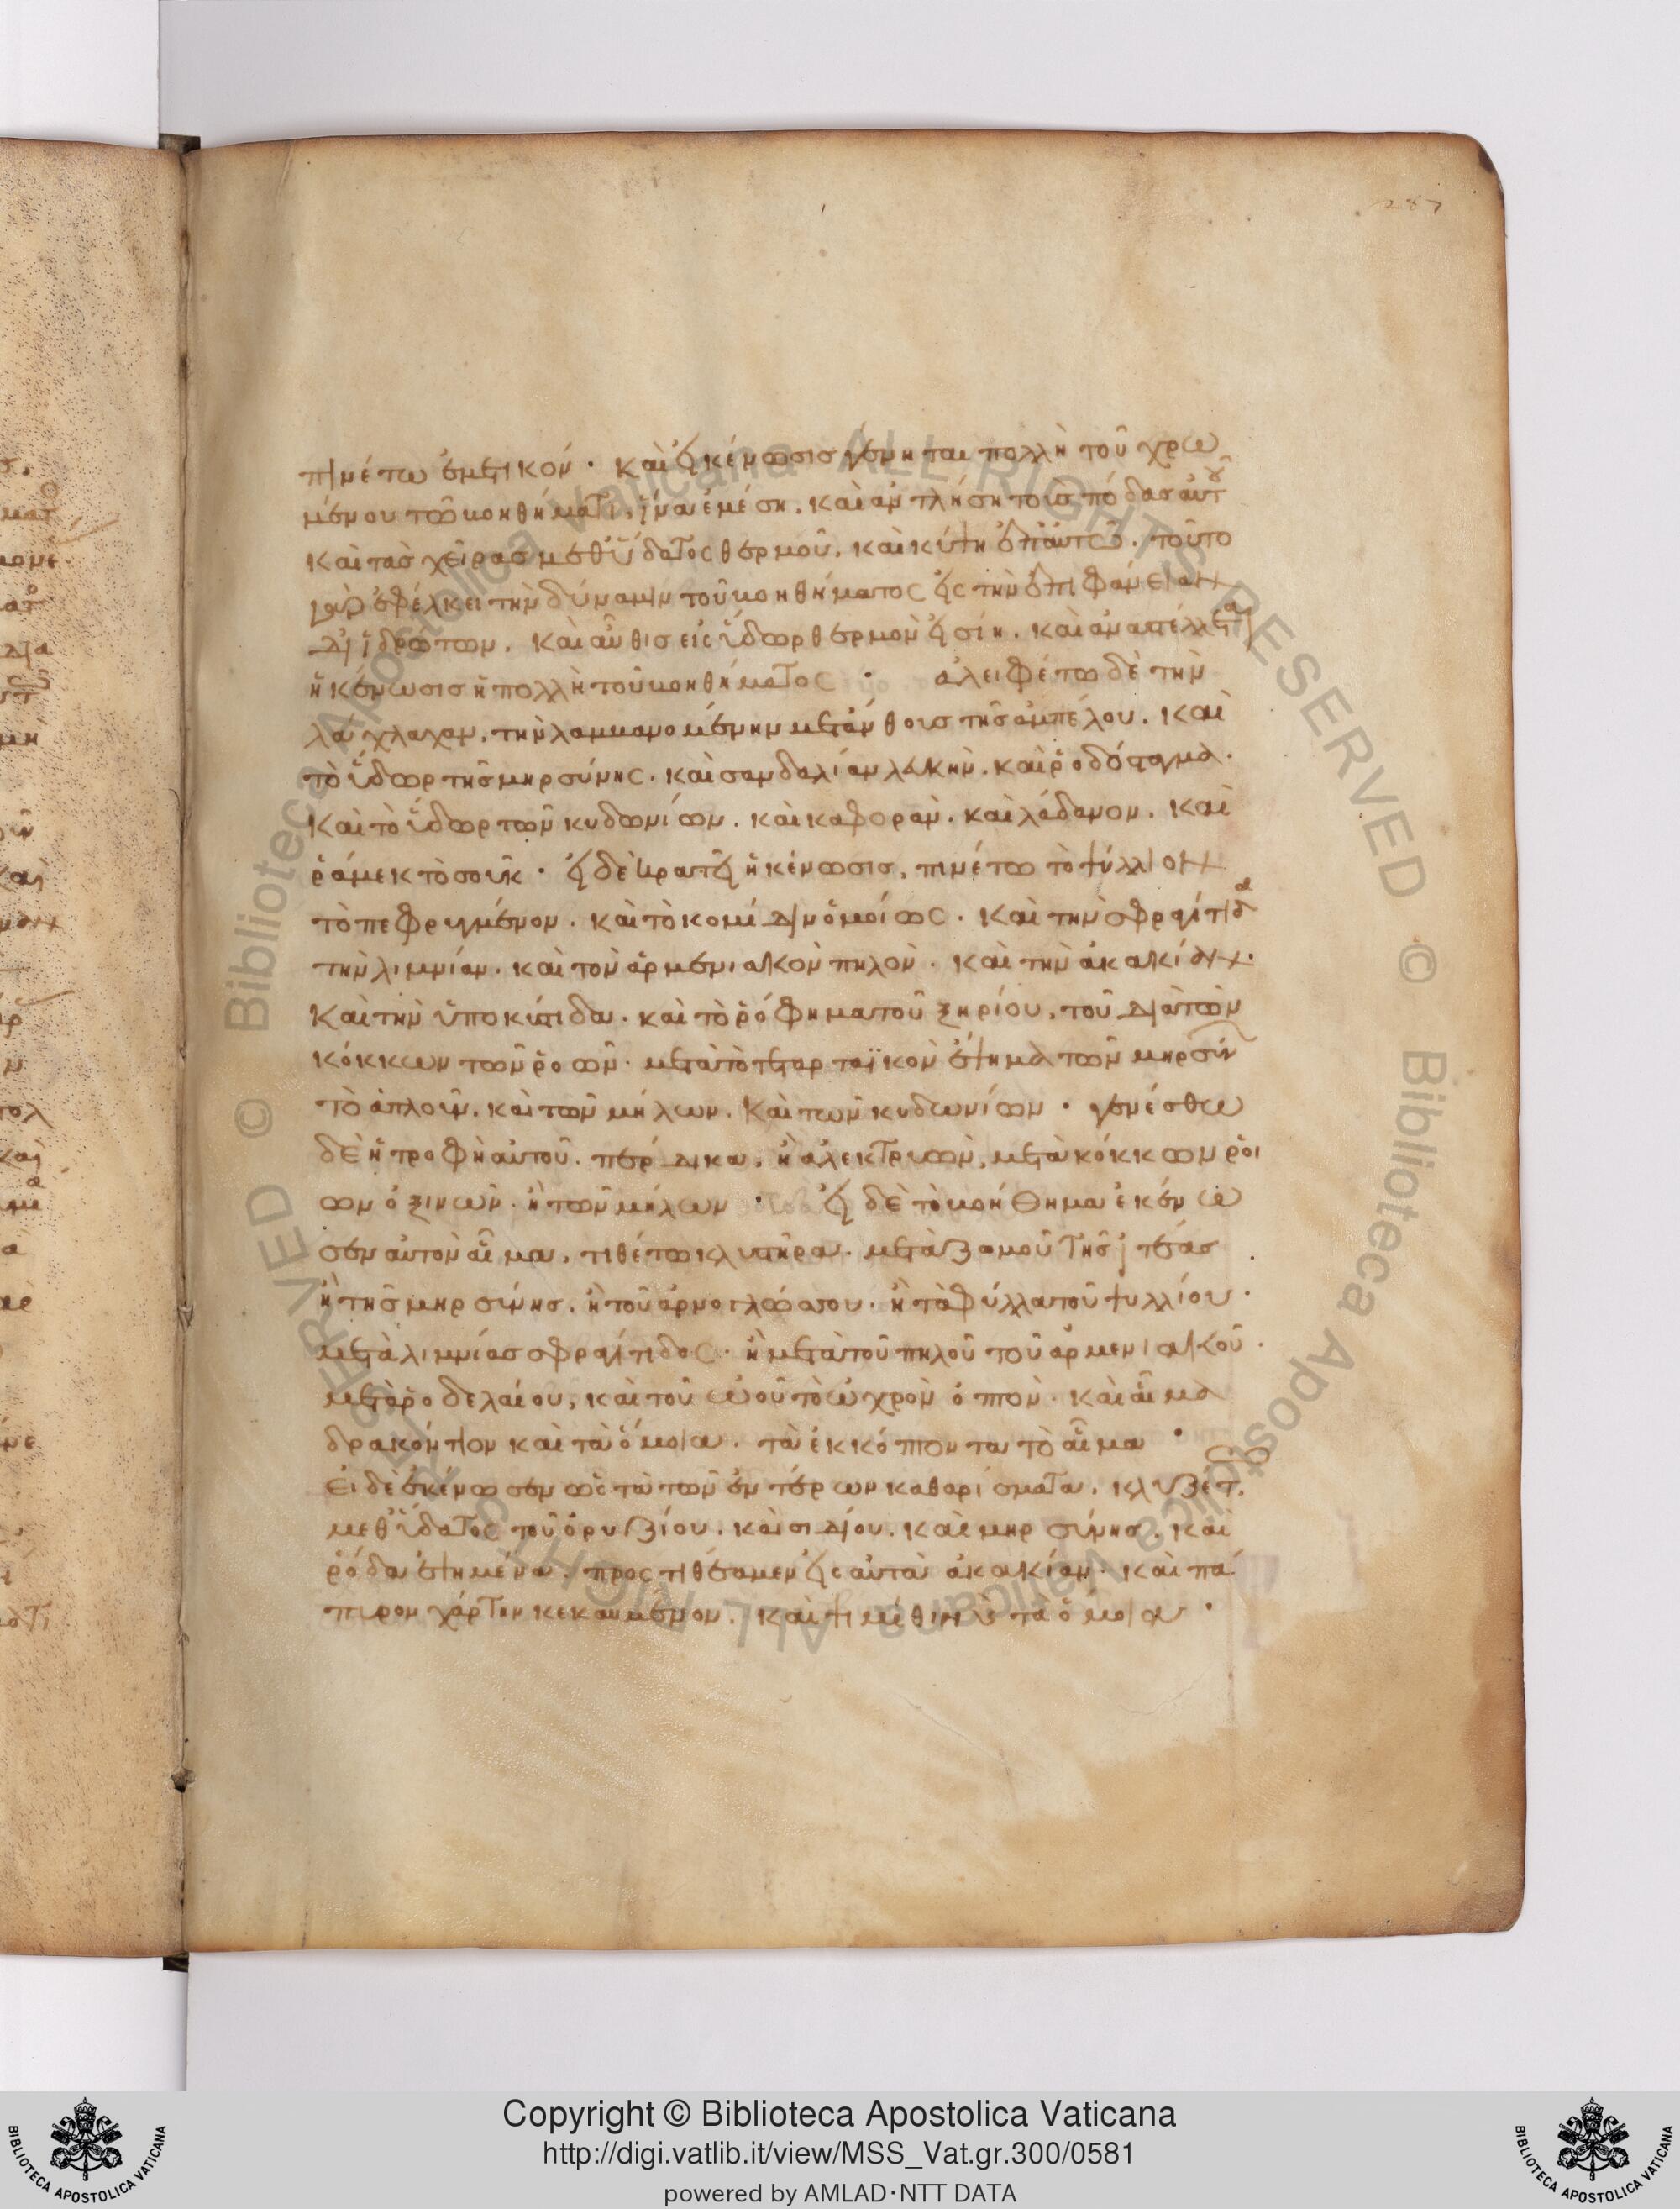 287
πινέτω ἐμετικόν · καὶ εἰ κένωσις γένηται πολλὴ τοῦ χρω
μένου τῶ κινηθήματι, ἵνα ἐμέση. καὶ ἀντλήση τοὺς πόδας αὐτοῦ
καὶ τὰς χεῖρας μεθ ὕδατος θερμοῦ. καὶ κύπτη ἐπ αὐτῶ. τοῦτο
γὰρ ἐφέλκει τὴν δύναμιν τοῦ κινηθήματος εἰς τὴν ἐπιφάνειαν
δι ἱδρώτων. καὶ αὖθις εἰς ὕδωρ θερμὸν
ἡ κένωσις ἡ πολλὴ τοῦ κινηθήματος · ἀλειφέτω δὲ τὴν
λάχλαχαν, τὴν λαμβανομένην μετ ἄνθους τῆς ἀμπέλου. καὶ
τὸ ὕδωρ τῆς μηρσύνης. καὶ σανδαλίαν λευκὴν. καὶ ῥοδόσταγμα.
καὶ τὸ ὕδωρ τῶν κυδωνίων. καὶ καφορὰν. καὶ λάδανον. καὶ
ῥάμεκ τὸ σοὺκ · εἰ δὲ κρατεῖ ἡ κένωσις, πινέτω τὸ ψύλλιον
τὸ πεφρυγμένον. καὶ τὸ κομίδιν ὁμοίως. καὶ τὴν σφραγίτιδα
τὴν λιμνίαν. καὶ τὸν ἀρμενιακὸν πηλὸν. καὶ τὴν ἀκακίαν.
καὶ τὴν ὑποκιστίδα. καὶ τὸ ῥόφημα τοῦ ξηρίου, τοῦ διὰ τῶν
κόκκων τῶν ῥοῶν. μετὰ τὸ τεταρταϊκὸν ἕψημα τῶν μηρσίν
τὸ ἁπλοῦν. καὶ τῶν μήλων. καὶ τῶν κυδωνίων · γενέσθω
δὲ ἡ τροφὴ αὐτοῦ. πέρδικα. ἢ ἀλεκτρυὼν, μετὰ κόκκων ῥοι
ων ὀξινῶν. ἢ τῶν μήλων · εἰ δὲ τὸ κινήθημα ἐκένω
σεν αὐτὸν αἷμα, τιθέτω κλυστῆρα. μετὰ ζωμοῦ τῆς ἰτέας
ἢ τῆς μηρσίνης. ἢ τοῦ ἀρνογλώσσου. ἢ τὰ φύλλα τοῦ ψυλλίου.
μετὰ λιμνίας σφραγίτιδος. ἢ μετὰ τοῦ πηλοῦ τοῦ ἀρμενιακοῦ.
μετὰ ῥοδελαίου, καὶ τοῦ ὠοῦ τὸ ὠχρὸν ὀπτὸν. καὶ αἷμα
δρακόντιον καὶ τὰ ὅμοια. τὰ ἐκκόπτοντα τὸ αἷμα ·
εἰ δὲ ἐκένωσεν ὡς τὰ τῶν ἐντέρων καθαρίσματα. κλυζέτω
μεθ ὕδατος τοῦ ὀρυζίου. καὶ σιδίου. καὶ μηρσίνης. καὶ
ῥόδα ἑψημένα. προστιθέαμεν εἰς αὐτὰ ἀκακίαν. καὶ πά
πυρον χάρτην κεκαυμένον. καὶ ψιμίθιν καὶ τὰ ὅμοια ·
Copyright © Biblioteca Apostolica Vaticana
http://digi.vatlib.it/view/MSS_Vat.gr.300/0581
powered by AMLAD·NTT DATA